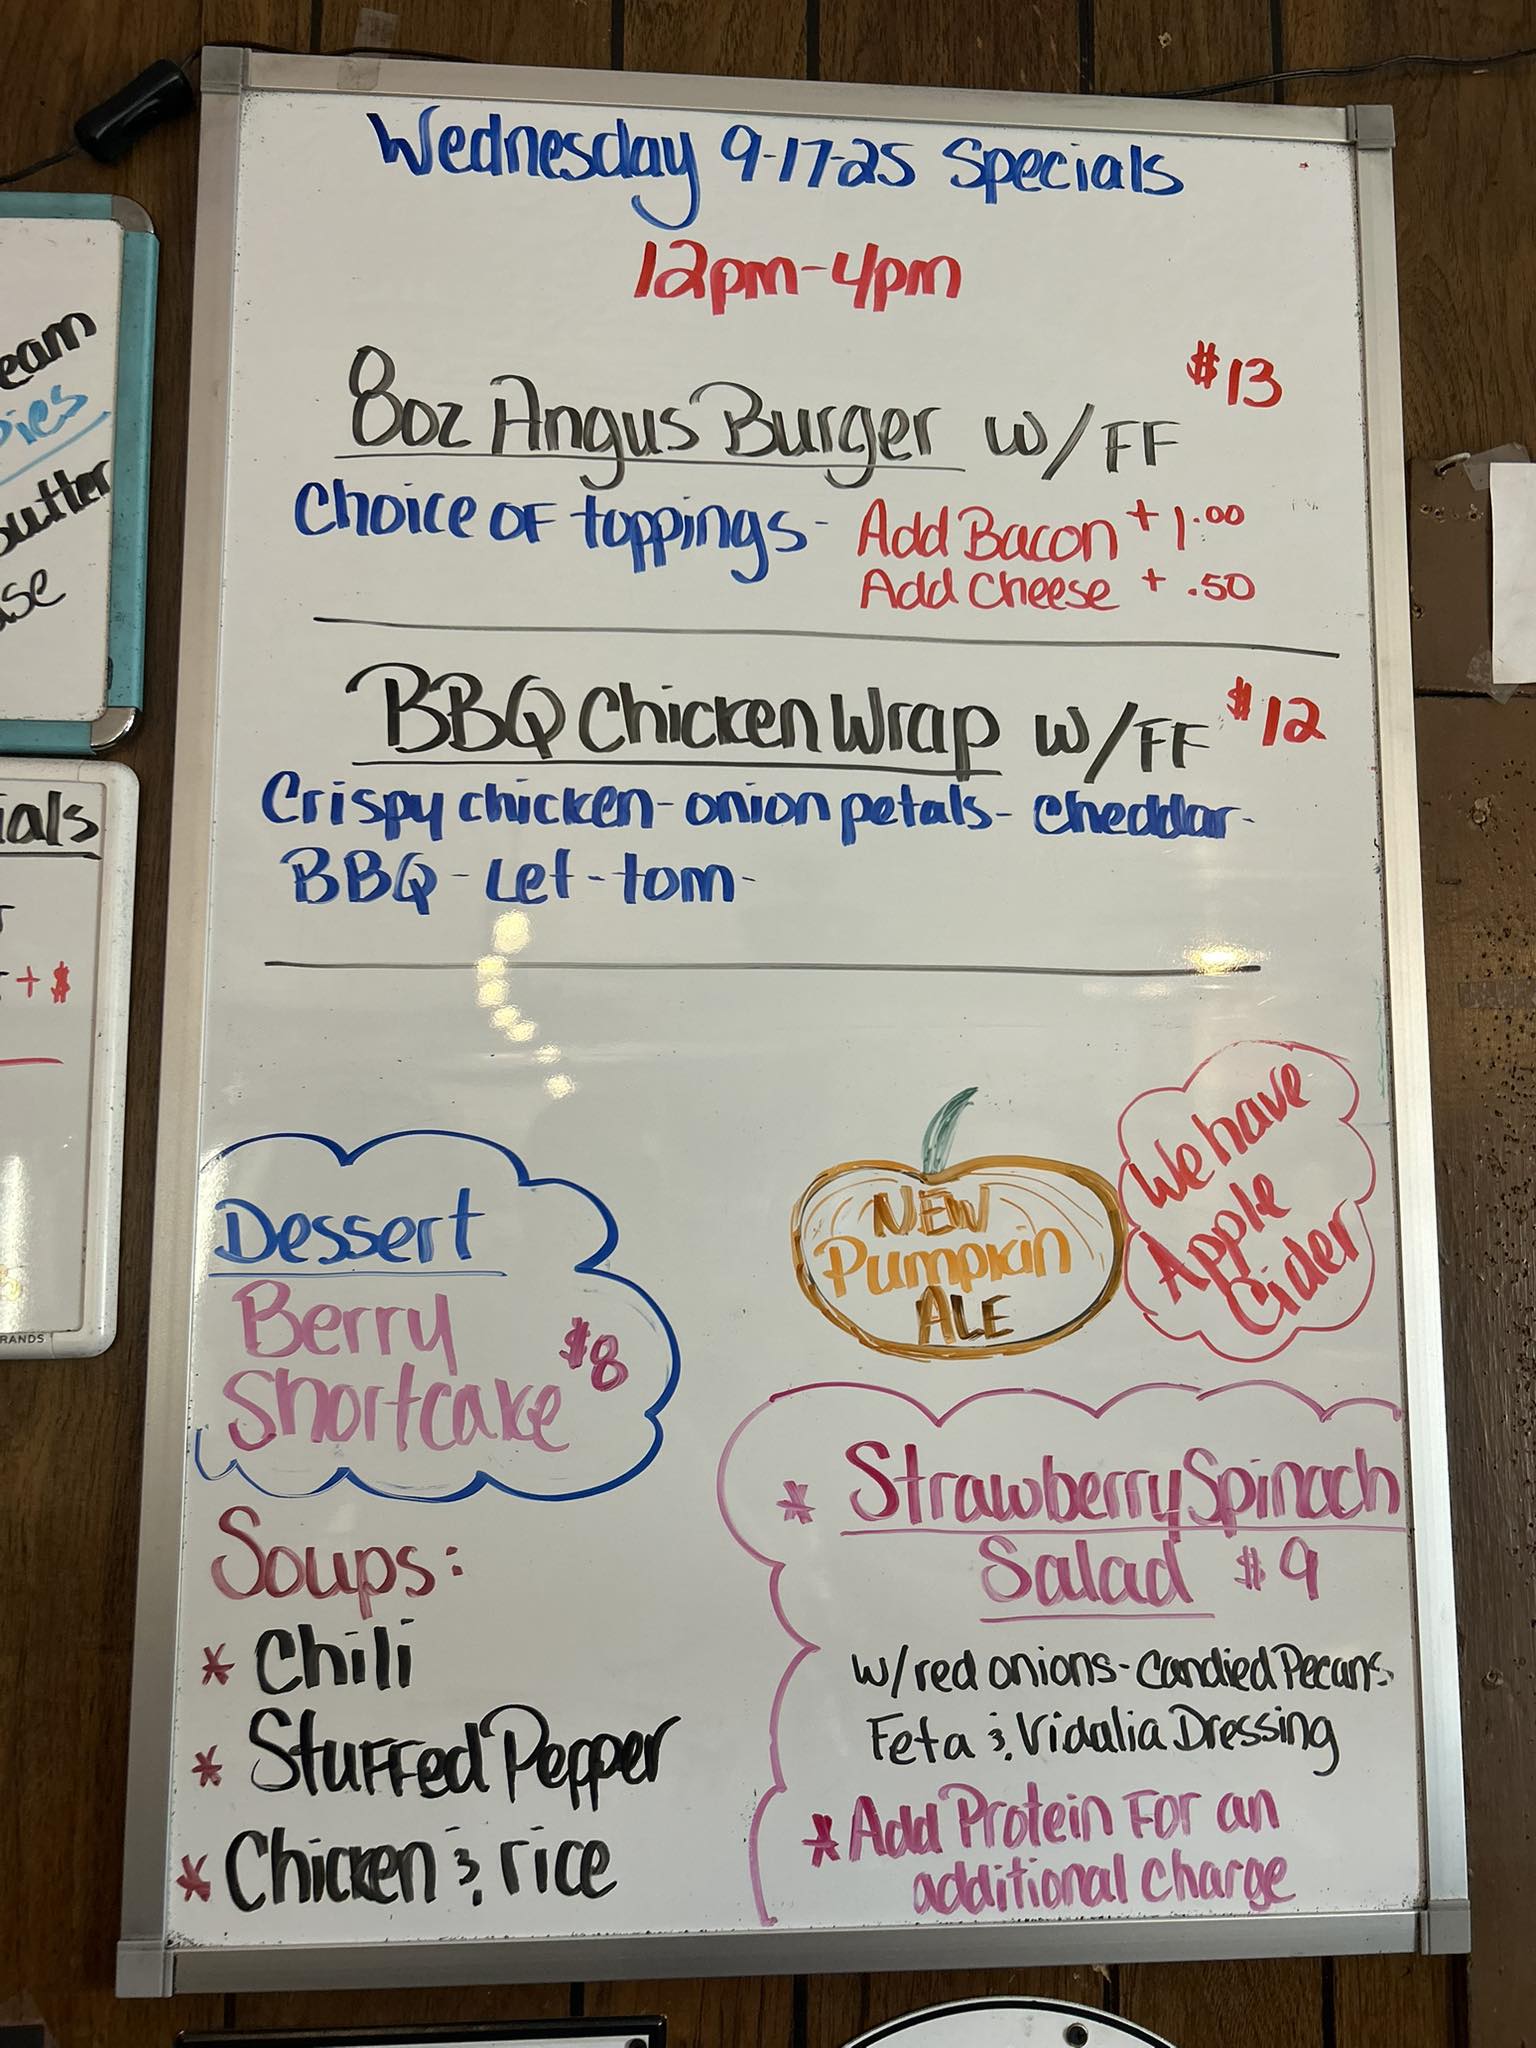 Wednesday 9-17-25 Specials
12pm-4pm
8oz Angus Burger w/FF $13
Choice OF toppings- Add Bacon + 1.00
Add Cheese + .50
BBQ Chicken Wrap w/FF $12
Crispy chicken-onion petals-cheddar-
BBQ-Let-tom-
Dessert
Berry
Shortcake $8
NEW
Pumpkin
ALE
We have
Apple
Cider
Soups:
* Chili
* Stuffed Pepper
* Chicken & rice
* Strawberry Spinach
Salad $9
w/red onions-Candied Pecans-
Feta & Vidalia Dressing
* Add Protein For an
additional charge
eam
ies
utter
ials
+ $
RANDS